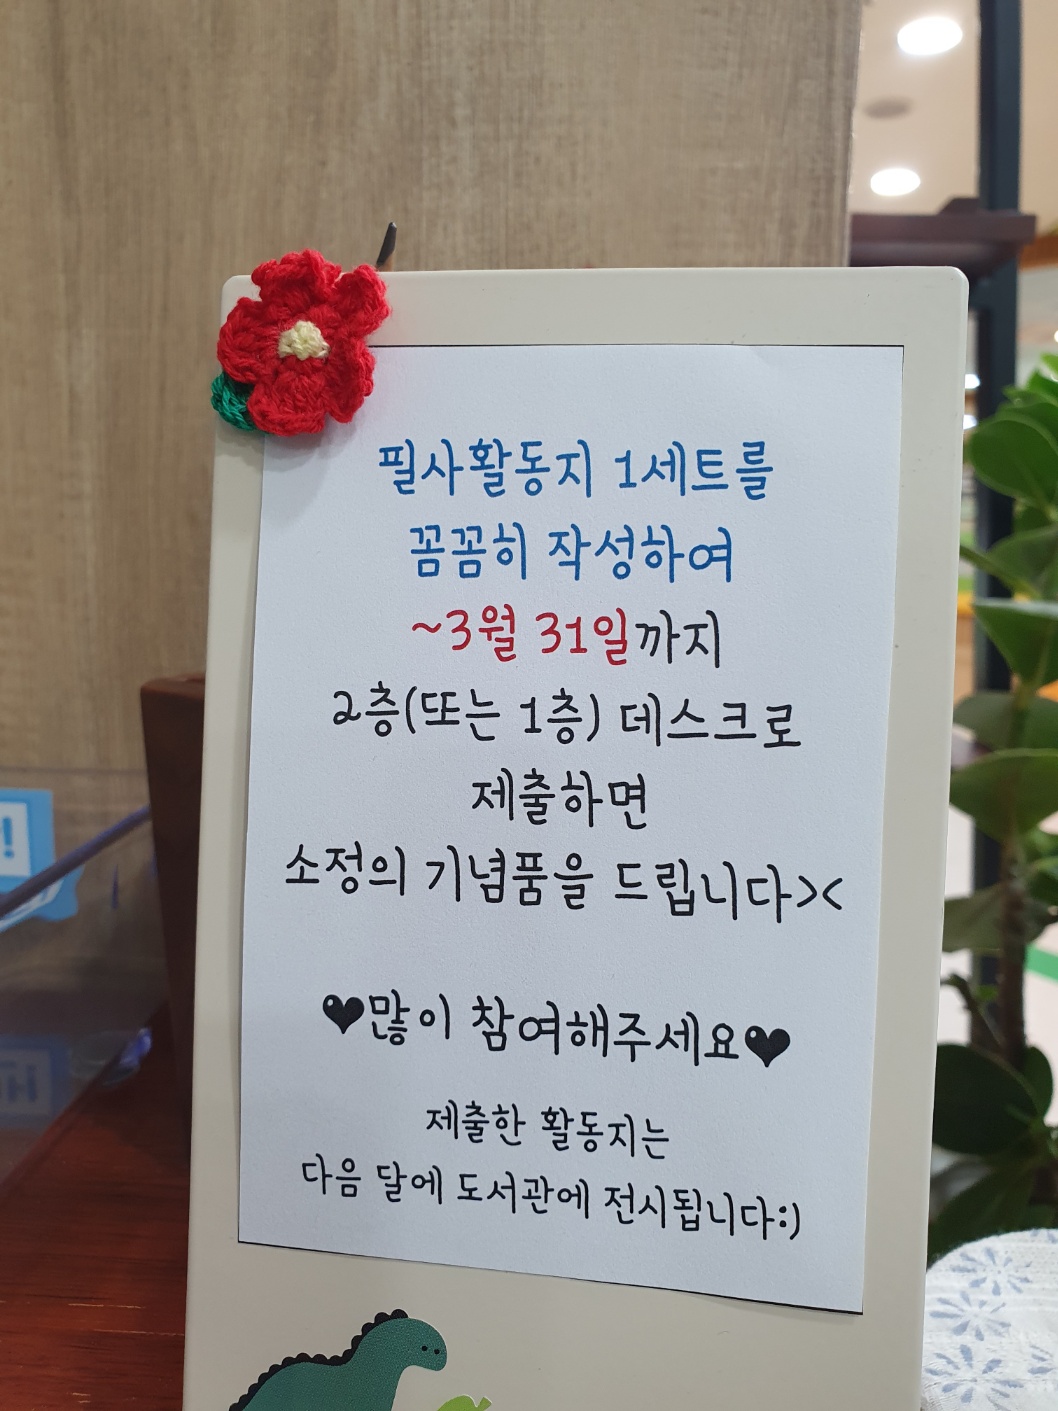 필사활동지 1세트를
꼼꼼히 작성하여
~3월 31일까지
2층(또는 1층) 데스크로
제출하면
소정의 기념품을 드립니다><
♥많이 참여해주세요♥
제출한 활동지는
다음 달에 도서관에 전시됩니다:)